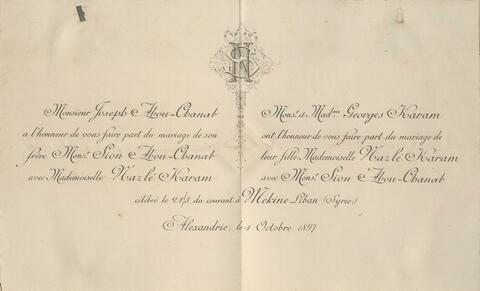 Monsieur Joseph Abou-Chanab
a l'honneur de vous faire part du mariage de son
frère Mons.r Sion Abou-Chanab
avec Mademoiselle Nazlé Karam
Mons.r & Mad.me Georges Karam
ont l'honneur de vous faire part du mariage de
leur fille Mademoiselle Nazlé Karam
avec Mons.r Sion Abou-Chanab
célébré le du courant à Mékine Liban (Syrie)
Alexandrie, le Octobre 1897